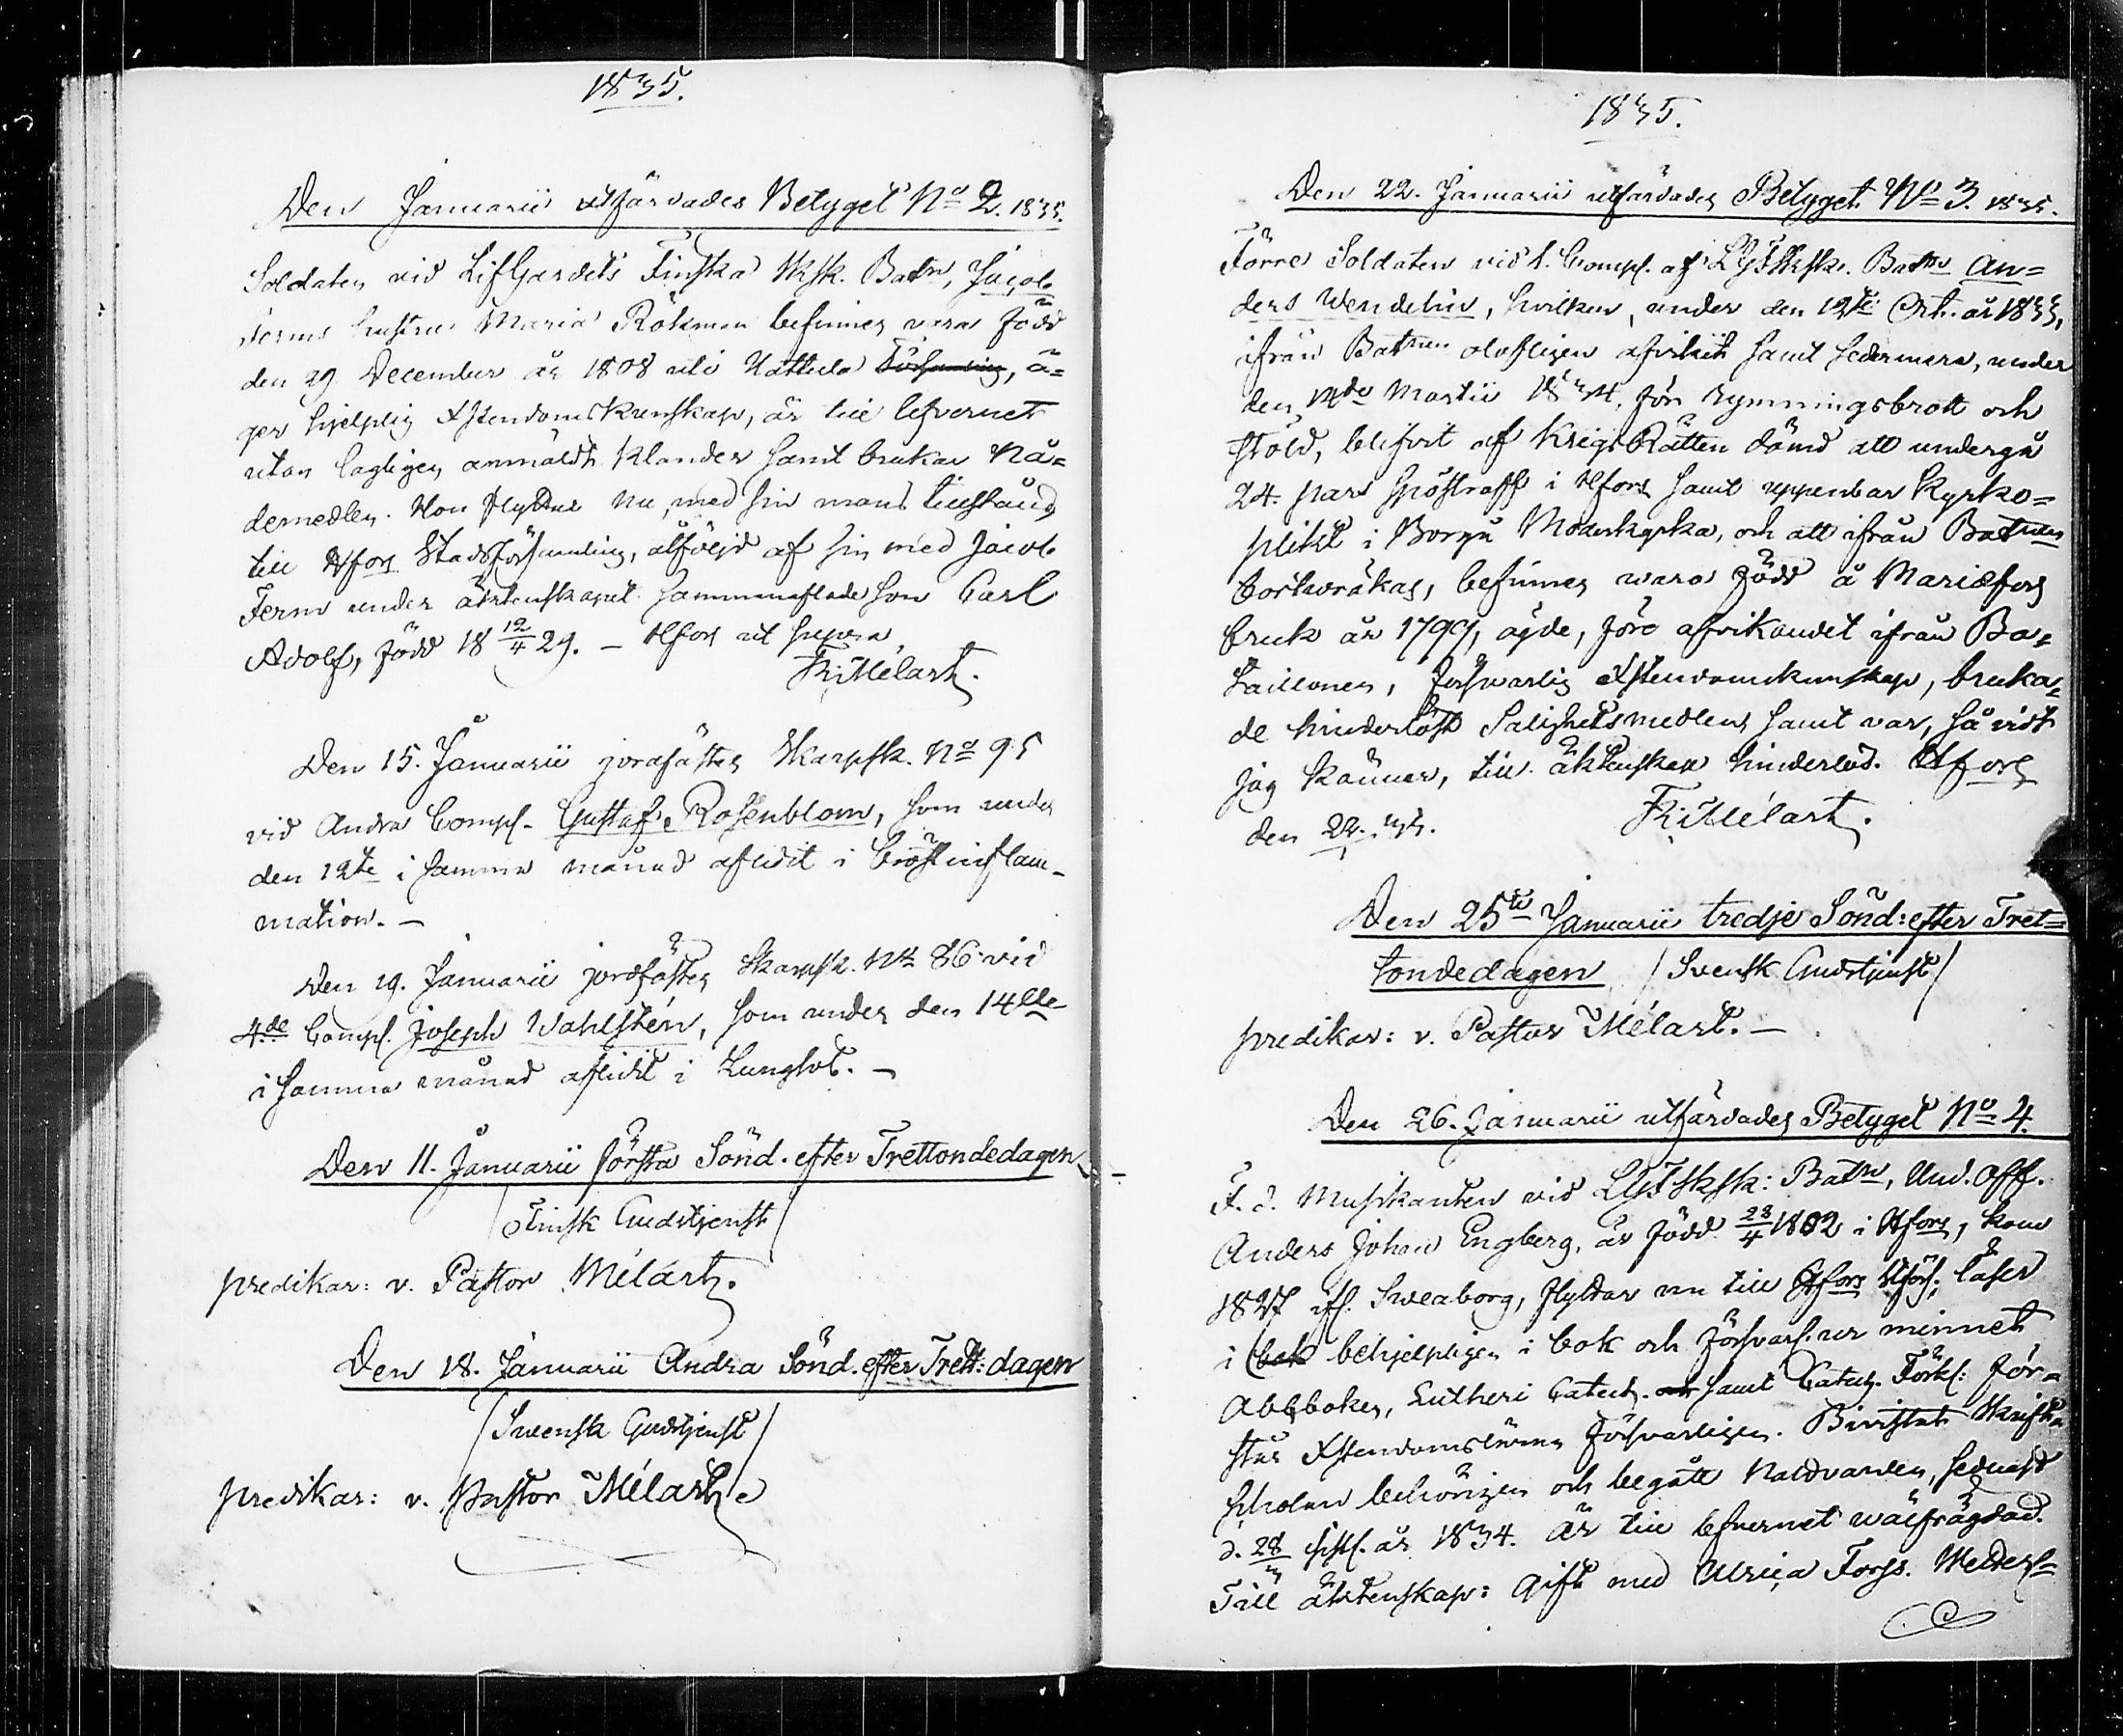 1835.
Den Januarii utfärdades Betyget No 2. 1835.
Soldaten vid LifGardets Finska Sksk. Batn, Jacob
Ferms hustru Maria Rökman befinnes vara född
den 29 December år 1808 uti Hattula Församling, ä-
ger hjelplig Xstendomskunskap, är till lefvernet
utan lagligen anmäldt klander samt brukar Nå-
demedlen. Hon flyttar nu, med sin mans tillstånd,
till Hfors StadsFörsamling, åtföljd af sin med Jacob
Ferm under äktenskapet sammanaflade son Carl
Adolf, född 18 12/4 29. – Hfors ut supra
Mélart.
Den 15. Januarii jordfästes Skarpsk. No 95
vid Andra Comp. Gustaf Rosenblom, som under
den 12te i samma månad aflidit i bröstinflam-
mation. –
Den 19. Januarii jordfästes Skarpsk. No 86 vid
4de Comp. Joseph Wahlstén, som under den 14de
i samma månad aflidit i Lungsot. –
Den 11. Januarii första Sönd. efter Trettondedagen
/Finsk Gudstjenst/
predikar: v. Pastor Mélart.
Den 18. Januarii Andra Sönd. efter Trett: dagen
/Swensk Gudstjenst/
predikar: v. Pastor Mélart.
1835.
Den 22. Januarii utfärdades Betyget No 3. 1835.
Förre Soldaten vid 1. Comp. af LGFSksk. Batn An=
ders Wendelin, hvilken, under den 12te Oct. år 1833,
ifrån Batnen olofligen afvikit samt sedermera, under
den 14de Martii 1834, för rymningsbrott och
stöld, blifvit af KrigsRätten dömd att undergå
24. par spöstraff i Hfors samt uppenbar Kyrko=
plikt i Borgå Moderkyrka, och att ifrån Batnen
bortvräkas, befinnes vara född å Mariæfors
bruk år 1799, ägde, före afvikandet ifrån Ba=
taillonen, försvarlig Xstendomskunskap, bruka=
de hinderlöst Salighetsmedlen samt var, så vidt
jag känner, till äktenskap hinderlös. Hfors
den 22. 1/35. Mélart.
Den 25te Januarii tredje Sönd: efter Tret=
tondedagen /Svensk Gudstjenst/
predikar: v. Pastor Mélart. –
Den 26. Januarii utfärdades Betyget No 4.
F. d. Musikanten vid LGFSksk: Batn, Und. Off.
Anders Johan Engberg, är född 28/4 1802 i Hfors, kom
1827 ifr. Sweaborg, flyttar nu till Hfors Stförs; läser
i bok behjelpligen i bok och försvarl. ur minnet
Abcboken, Lutheri Catech. samt Catech. Förkl: För=
står Xstendomslärans försvarligen. Bivistat Skrift=
skolan behörigen och begått Nattvarden, sednast
d. 28/3 sistl. år 1834. Är till lefvernet wälfrägdad.
Till äktenskap: Gift med Ulrica Forss.